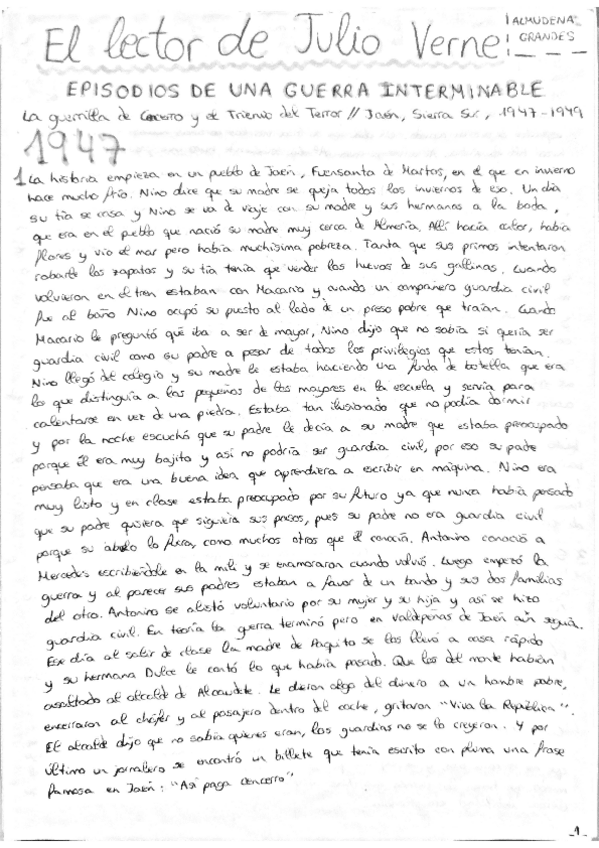 El lector de Julio Verne ALMUDENA GRANDES
EPISODIOS DE UNA GUERRA INTERMINABLE
La guerrilla de Cencerro y el Trienio del Terror // Jaén, Sierra Sur, 1947-1949
1947
1. La historia empieza en un pueblo de Jaén, Fuensanta de Martos, en el que en invierno
hace mucho frío. Nino dice que su madre se queja todos los inviernos de eso. Un día
su tía se casa y Nino se va de viaje con su madre y sus hermanas a la boda,
que era en el pueblo que nació su madre muy cerca de Almería. Allí hacía calor, había
flores y vio el mar pero había muchísima pobreza. Tanta que sus primos intentaron
robarle los zapatos y su tía tenía que vender los huevos de sus gallinas. Cuando
volvieron en el tren estaban con Macario y cuando un compañero guardia civil
fue al baño Nino ocupó su puesto al lado de un preso pobre que traían. Cuando
Macario le preguntó qué iba a ser de mayor, Nino dijo que no sabía si quería ser
guardia civil como su padre a pesar de todos los privilegios que estos tenían.
Nino llegó del colegio y su madre le estaba haciendo una funda de botella que era
lo que distinguía a los pequeños de los mayores en la escuela y servía para
calentarse en vez de una piedra. Estaba tan ilusionado que no podía dormir
y por la noche escuchó que su padre le decía a su madre que estaba preocupado
porque él era muy bajito y así no podría ser guardia civil, por eso su padre
pensaba que era una buena idea que aprendiera a escribir en máquina. Nino era
muy listo y en clase estaba preocupado por su futuro ya que nunca había pensado
que su padre quisiera que siguiera sus pasos, pues su padre no era guardia civil
porque su abuelo lo fuera, como muchos otros que él conocía. Antonino conoció a
Mercedes escribiéndole en la mili y se enamoraron cuando volvió. Luego empezó la
guerra y al parecer sus padres estaban a favor de un bando y sus dos familias
del otro. Antonino se alistó voluntario por su mujer y su hija y así se hizo
guardia civil. En teoría la guerra terminó pero en Valdepeñas de Jaén aún seguía.
Ese día al salir de clase la madre de Paquito se los llevó a casa rápido
y su hermana Dulce le contó lo que había pasado. Que los del monte habían
asaltado al alcalde de Alcaudete. Le dieron algo del dinero a un hombre pobre,
encerraron al chófer y al pasajero dentro del coche, gritaron "Viva la República".
El alcalde dijo que no sabía quienes eran, los guardias no se lo creyeron. Y por
último un jornalero se encontró un billete que tenía escrito con pluma una frase
famosa en Jaén: "Así paga Cencerro"
_1_